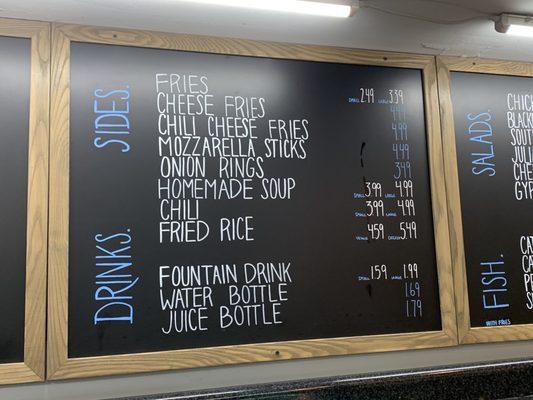 SIDES.
FRIES SMALL 2.49 LARGE 3.39
CHEESE FRIES 4.49
CHILI CHEESE FRIES 4.99
MOZZARELLA STICKS 4.49
ONION RINGS 3.49
HOMEMADE SOUP SMALL 3.99 LARGE 4.99
CHILI SMALL 3.99 LARGE 4.99
FRIED RICE 4.59 5.49
DRINKS.
FOUNTAIN DRINK SMALL 1.59 LARGE 1.99
WATER BOTTLE 1.69
JUICE BOTTLE 1.79
SALADS.
CHIC
BLACK
SOUTH
JULI
CHE
GYR
FISH.
WITH FRIES
CAT
CA
P
S